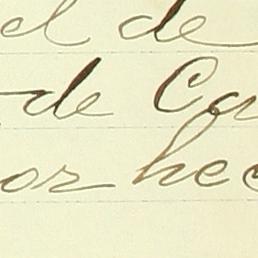 el de
de Ca
or hec